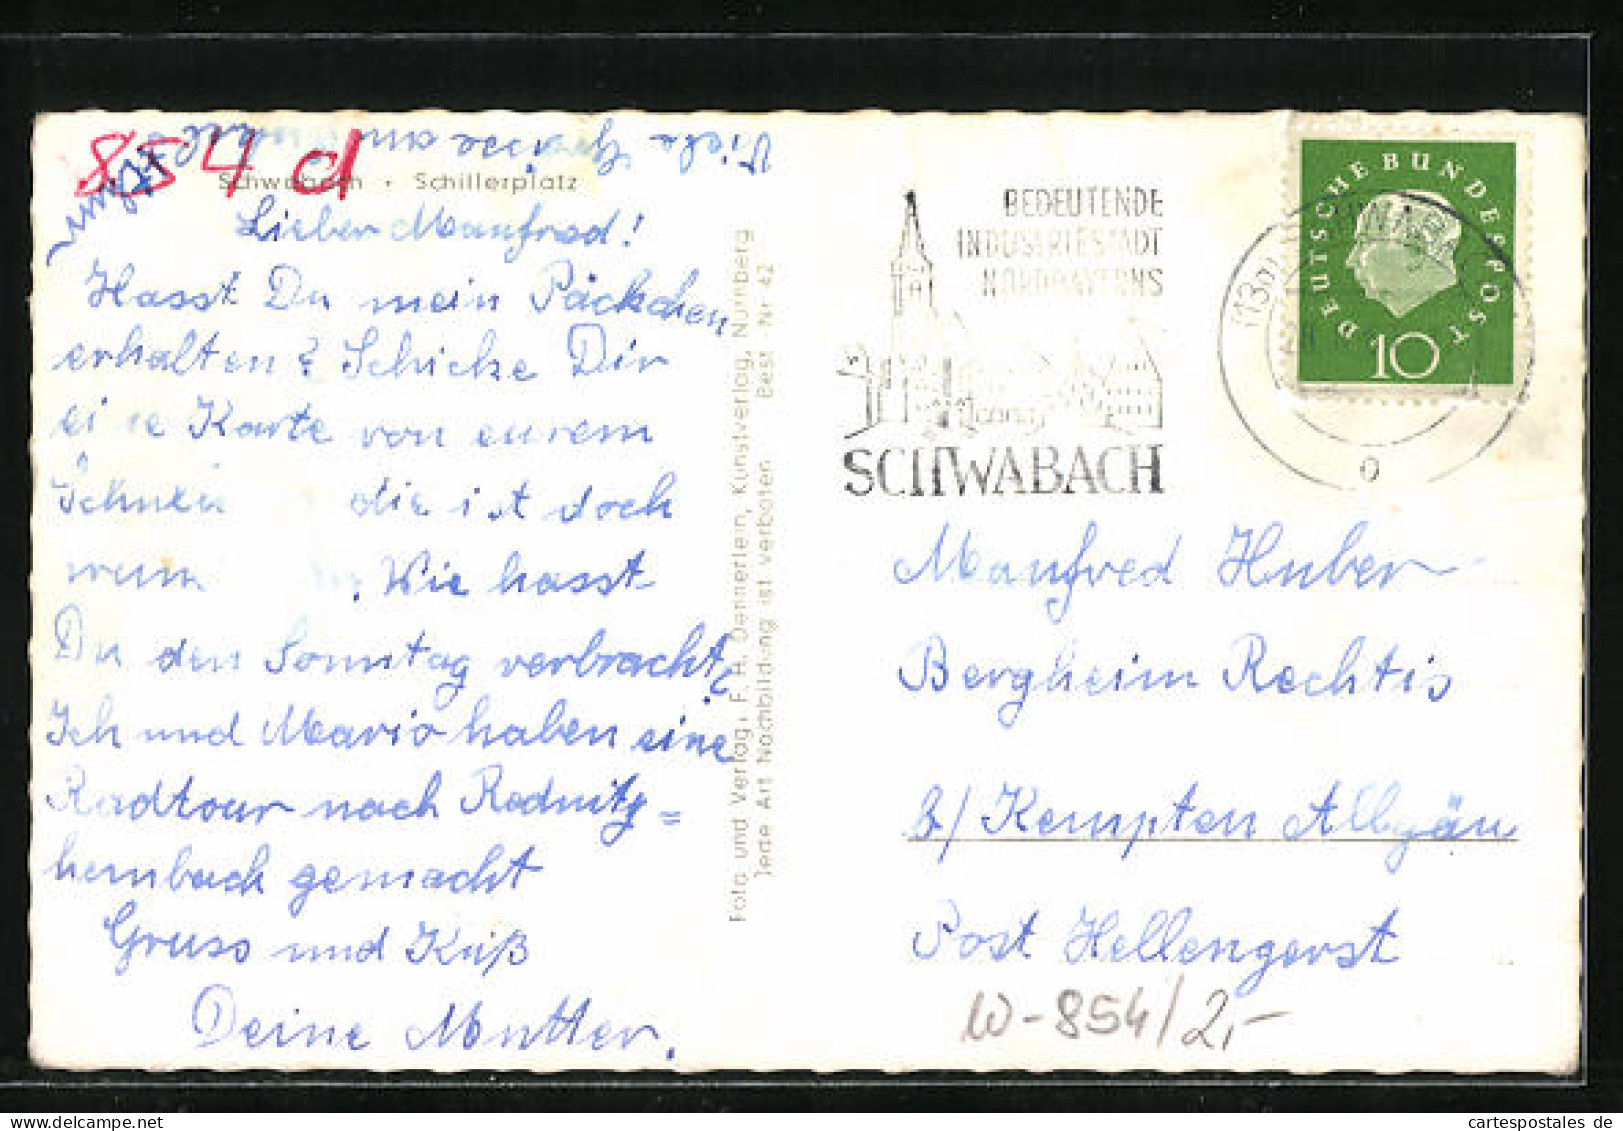 854 d
Viele Grüsse
Schwabach • Schillerplatz
Lieber Manfred!
Hasst Du mein Päckchen
erhalten? Schicke Dir
eine Karte von eurem
die ist doch
Wie hasst
Du den Sonntag verbracht?
Ich und Mario haben eine
Radtour nach Rednitz=
hembach gemacht
Gruss und Kuß
Deine Mutter.
Foto und Verlag: F. H. Dennerlein, Kunstverlag, Nürnberg
Jede Art Nachbildung ist verboten Best.-Nr 42
BEDEUTENDE
INDUSTRIESTADT
NORDBAYERNS
SCHWABACH
(13a)
o
DEUTSCHE BUNDESPOST
10
Manfred Huber
Bergheim Rechtis
b/ Kempten Allgäu
Post Hellengerst
W-854/2,-
cartespostales de